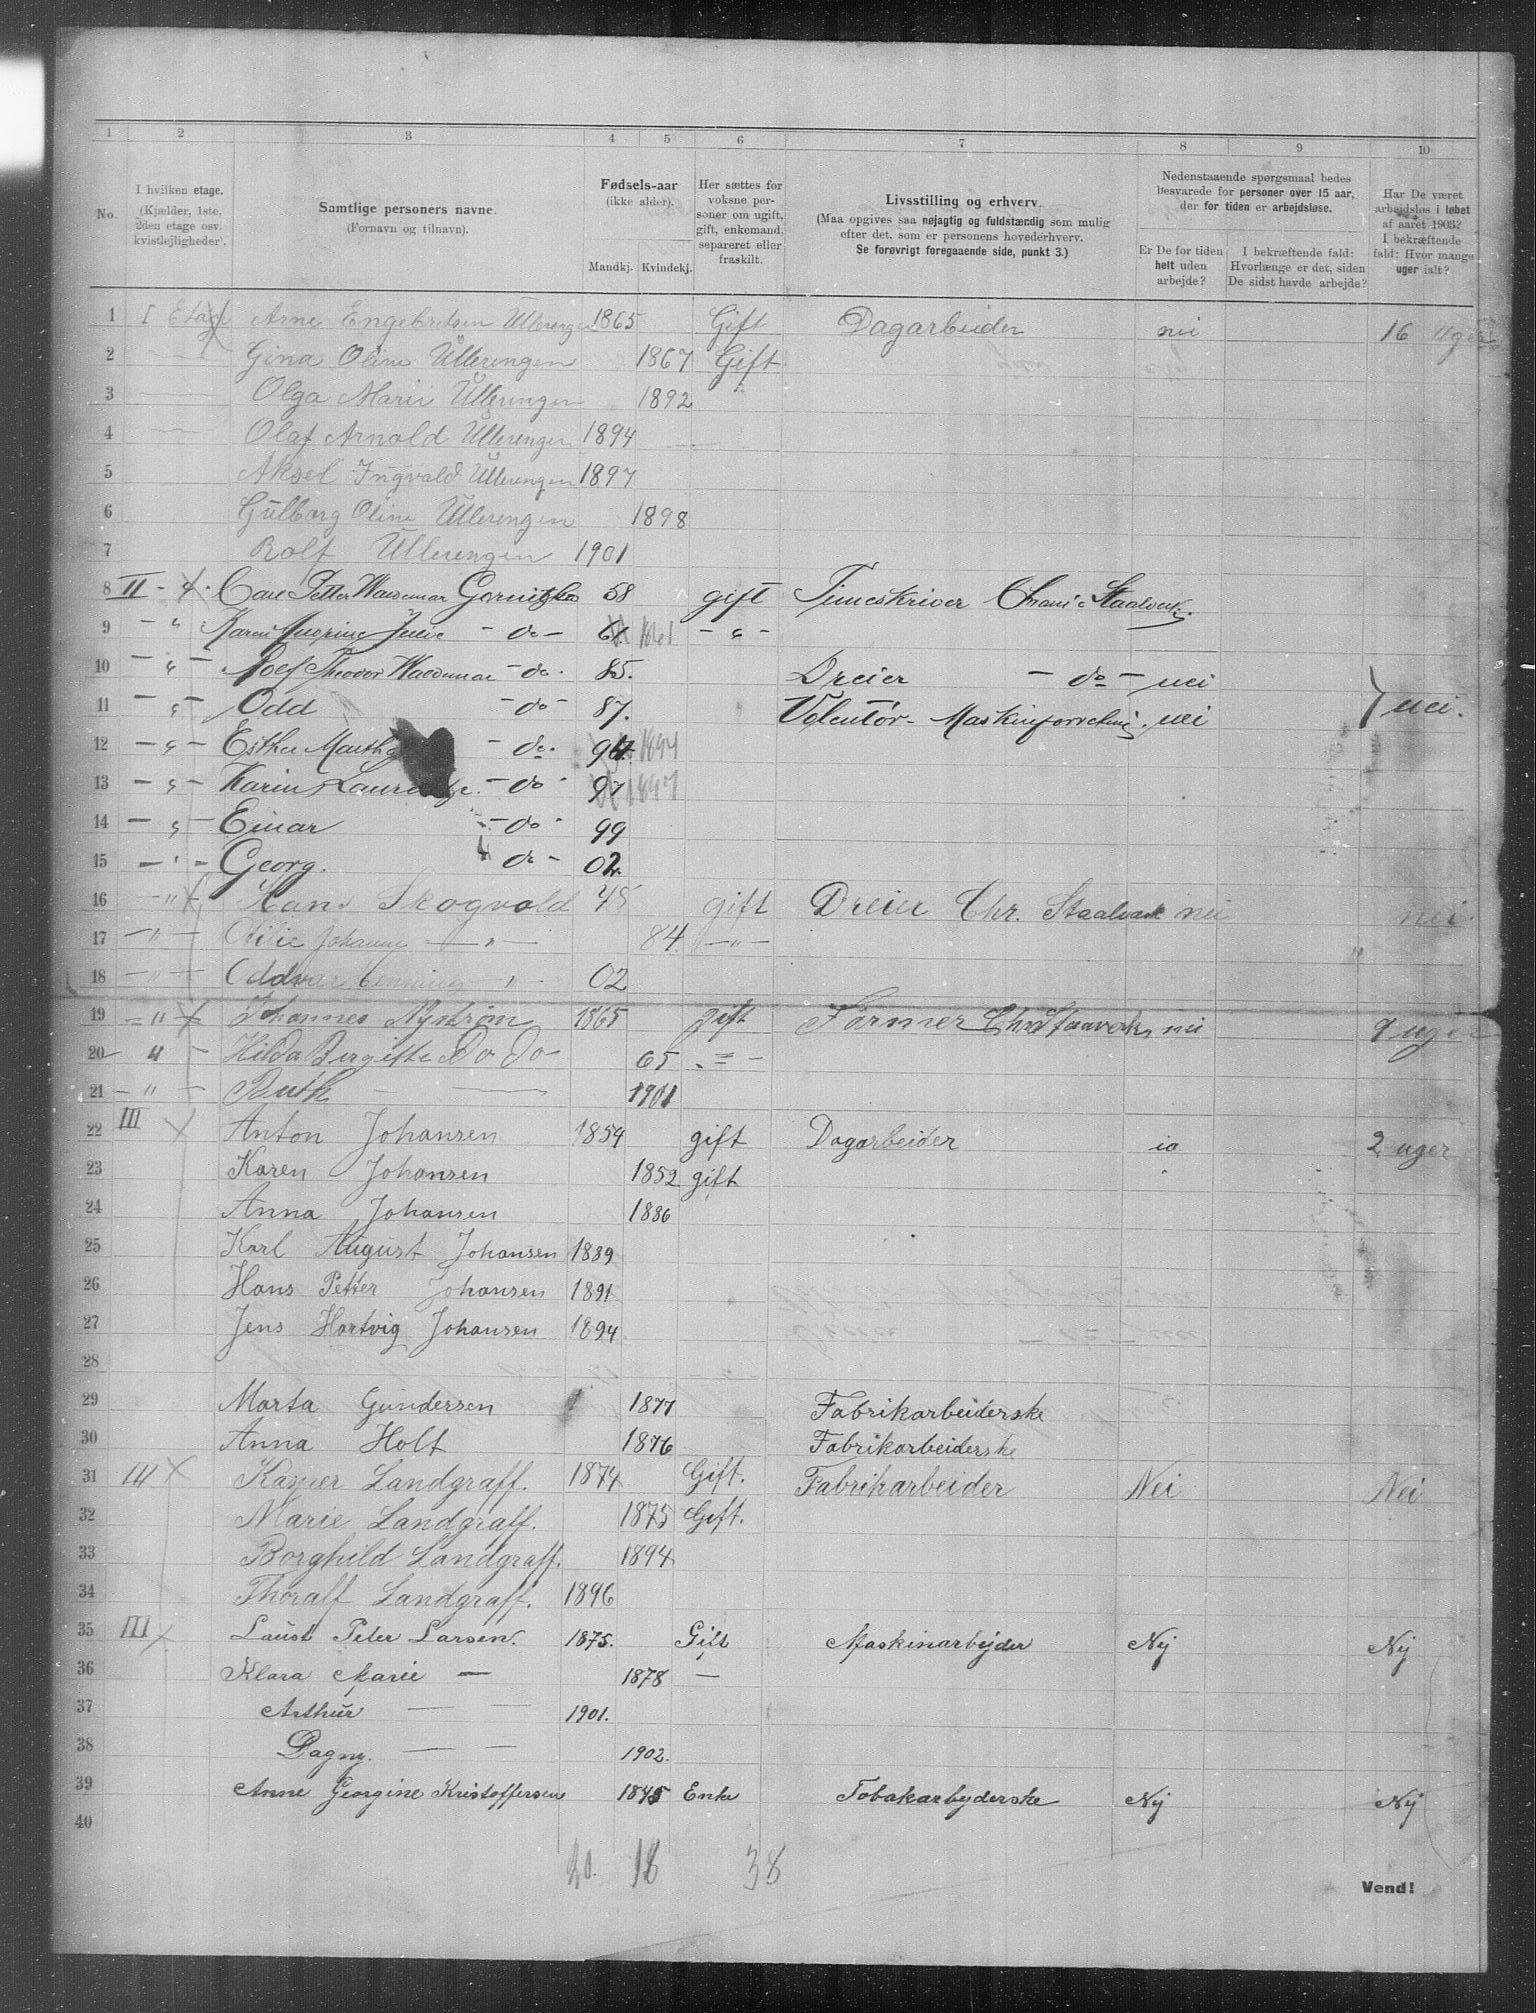 1 2 3 4 5 6 7 8 9 10
No.
I hvilken etage. (Kjælder, 1ste, 2den etage osv. kvistlejligheder).
Samtlige personers navne. (Fornavn og tilnavn).
Fødsels-aar (ikke alder). Mandkj. Kvindekj.
Her sættes for voksne personer om ugift, gift, enkemand, separeret eller fraskilt.
Livsstilling og erhverv. (Maa opgives saa nøjagtig og fuldstændig som mulig efter det, som er personens hovederhverv. Se forøvrigt foregaaende side, punkt 3.)
Nedenstaaende spørgsmaal bedes besvarede for personer over 15 aar, der for tiden er arbejdsløse.
Er De for tiden helt uden arbejde?
I bekræftende fald: Hvorlænge er det, siden De sidst havde arbejde?
Har De været arbejdsløs i løbet af aaret 1903? I bekræftende fald: Hvor mange uger ialt?
1 I Etag Arne Engebretsen Ullerengen 1865 Gift Dagarbeider nei 16 uger
2 — Gina Oline Ullerengen 1867 Gift
3 — Olga Marie Ullerengen 1892
4 — Olaf Arnold Ullerengen 1894
5 Aksel Ingvald Ullerengen 1897
6 Gulborg Oline Ullerengen 1898
7 Rolf Ullerengen 1901
8 II - Petter Waldemar Gornitzka 58 gift Timeskriver Chrania Staalverk
9 - " Karen Julie - do - 61 1861 - " -
10 - " - Rolf Theodor Waldemar - do - 85. Dreier - do - nei
11 - " - Odd - do - 87. Volentør - Maskinforretning. nei nei.
12 - " - Esther Martha - do - 94 1894
13 - " - Karin - do - 97 1897
14 - " - Einar - do - 99
15 - " - Georg. do - 02
16 - " - Hans Skogvold 75 gift Dreier Chr. Staalverk nei nei
17 - " - Johanne — " — 84. — " —
18 - " - Oddvar Henning - " - 02
19 = " - Johannes Nystrøm 1865 gift Former Chr Staaverk nei 9 uger
20 " - Hilda Bergitte Do do 65 - = -
21 - " - Ruth — — 1901
22 III Anton Johansen 1854 gift Dagarbeider ja 2 uger
23 Karen Johansen 1852 gift
24 Anna Johansen 1886
25 Karl August Johansen 1889
26 Hans Petter Johansen 1891
27 Jens Hartvig Johansen 1894
28
29 Marta Gundersen 1877 Fabrikarbeiderske
30 Anna Holt 1876 Fabrikarbeiderske
31 III Kasper Landgraff. 1874 Gift. Fabrikarbeider Nei Nei
32 Marie Landgraff. 1875 Gift.
33 Borghild Landgraff. 1894
34 Thoralf Landgraff. 1896
35 III Laust Peter Larsen. 1875. Gift Maskinarbejder Nej Nej
36 Klara Marie — 1878 —
37 Arthur — — 1901.
38 Dagny. — — 1902.
39 Anne Georgine Kristoffersen 1845 Enke Tobakarbejderske Nej Nej
40
20. 18 38
Vend!